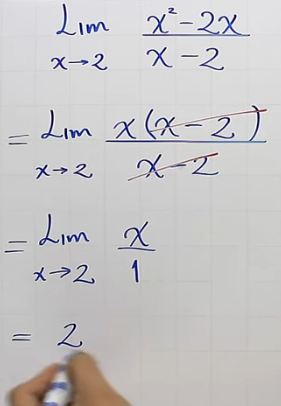 Lim x→2 x²-2x / x-2
= Lim x→2 x(x-2) / x-2
= Lim x→2 x / 1
= 2